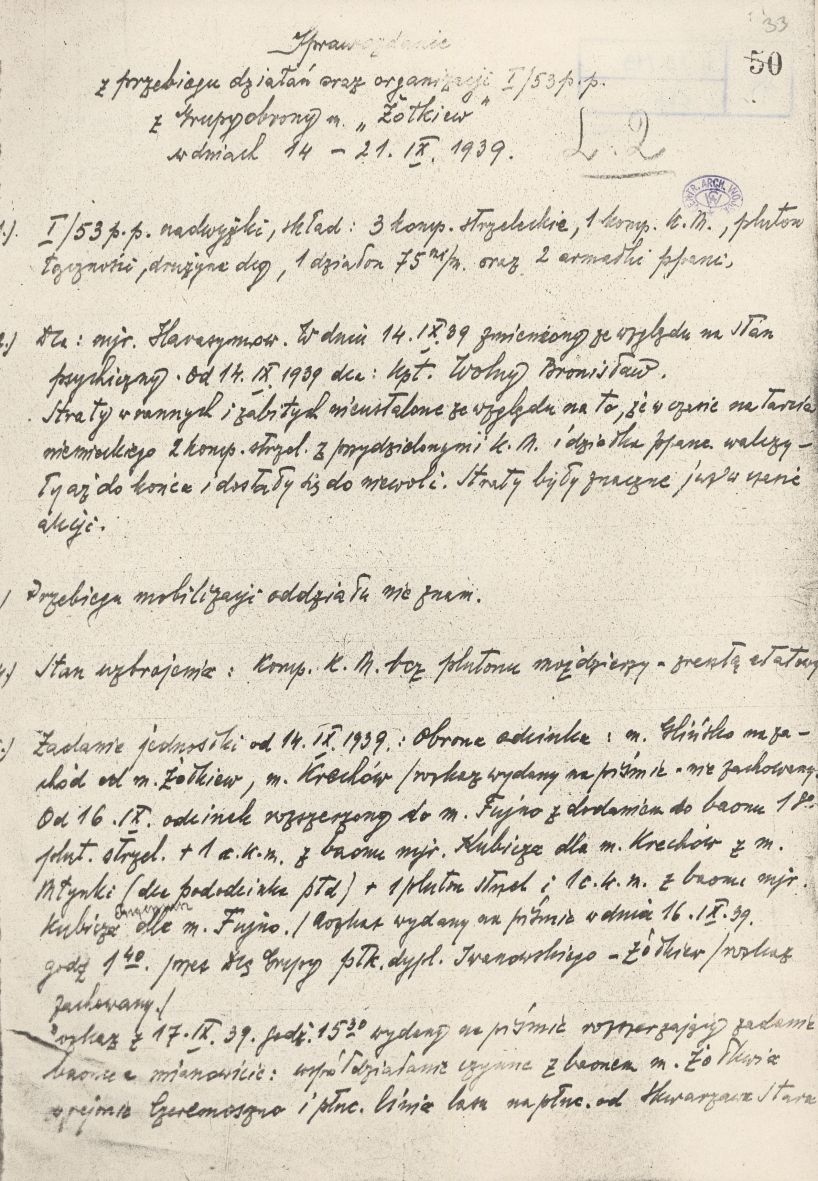 33
50
Sprawozdanie
z przebiegu działań oraz organizacji I/53 p.p.
z Grupy obrony m. „Żółkiew"
w dniach 14 – 21. IX. 1939.
L. 2
CENTR. ARCH. WOJ.
1.) I/53 p.p. nadwyżki, skład: 3 komp. strzeleckie, 1 komp. K.M., pluton
łączności, drużyna dcy, 1 działon 75 m/m. oraz 2 armatki ppanc.
2.) Dca: mjr. Harasymow. W dniu 14.IX.39 zmieniony ze względu na stan
psychiczny. Od 14.IX.1939 dca: kpt. Wolny Bronisław.
Straty w rannych i zabitych nieustalone ze względu na to, że w czasie natarcia
niemieckiego 2 komp. strzel. z przydzielonymi K.M. i działka ppanc. walczy–
ły aż do końca i dostały się do niewoli. Straty były znaczne już w czasie
akcji.
Przebiegu mobilizacji oddziału nie znam.
4.) Stan uzbrojenia: Komp. K.M. bez plutonu moździerzy – zresztą etatowy
Zadanie jednostki od 14.IX.1939.: Obrona odcinka: m. Glińsko na za–
chód od m. Żółkiew, m. Krechów /rozkaz wydany na piśmie – nie zachowany.
Od 16.IX. odcinek rozszerzony do m. Fujno z dodaniem do baonu 1
plut. strzel. + 1 c.k.m. z baonu mjr. Kubicza dla m. Krechów z m.
Młynki (dca pododcinka ptd) + 1 pluton strzel i 1 c.k.m. z baonu mjr.
Kubicza dla m. Fujno. /Rozkaz wydany na piśmie w dniu 16.IX.39.
godz 1 40. przez Dcę Grupy płk. dypl. Iwanowskiego – Żółkiew /rozkaz
zachowany./
Rozkaz z 17.IX.39. godz. 15 30 wydany na piśmie rozszerzający zadanie
baonu a mianowicie: współdziałanie czynne z baonem m. Żółkwia
w rejonie Czeremoszno i płnc. lisia lasu na płnc. od Skwarzawa Stara